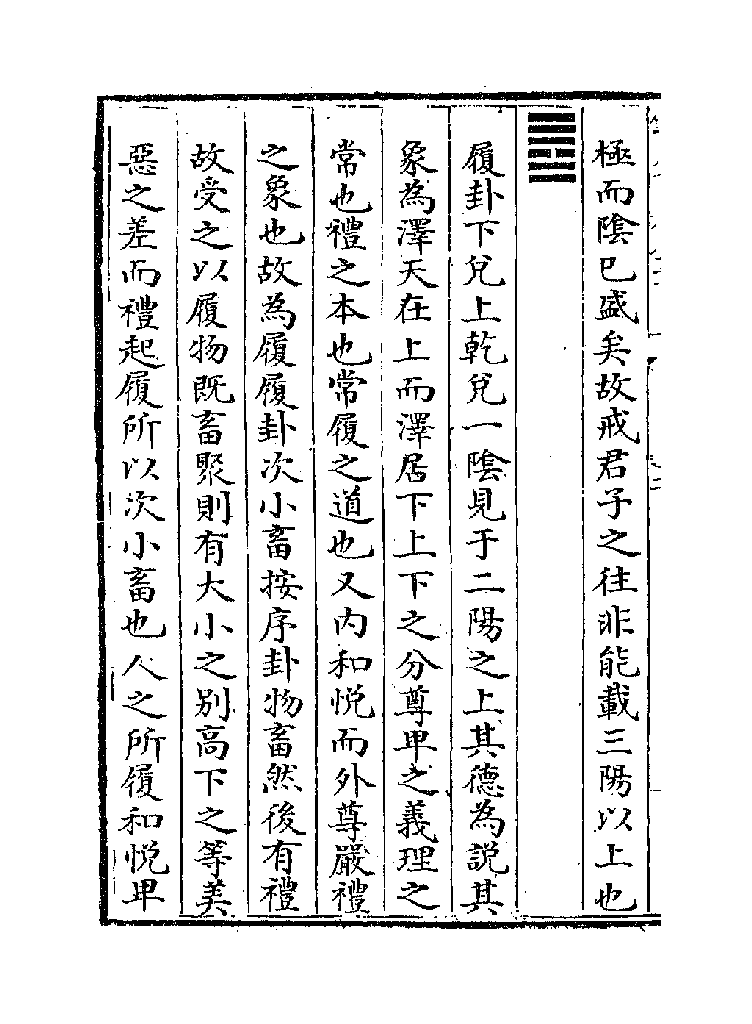 極而陰已盛矣故戒君子之往非能載三陽以上也
履卦下兌上乾兌一陰見于二陽之上其德為說其
象為澤天在上而澤居下上下之分尊卑之義理之
常也禮之本也常履之道也又内和悅而外尊嚴禮
之象也故為履履卦次小畜按序卦物畜然後有禮
故受之以履物既畜聚則有大小之别高下之等美
惡之差而禮起履所以次小畜也人之所履和悅卑